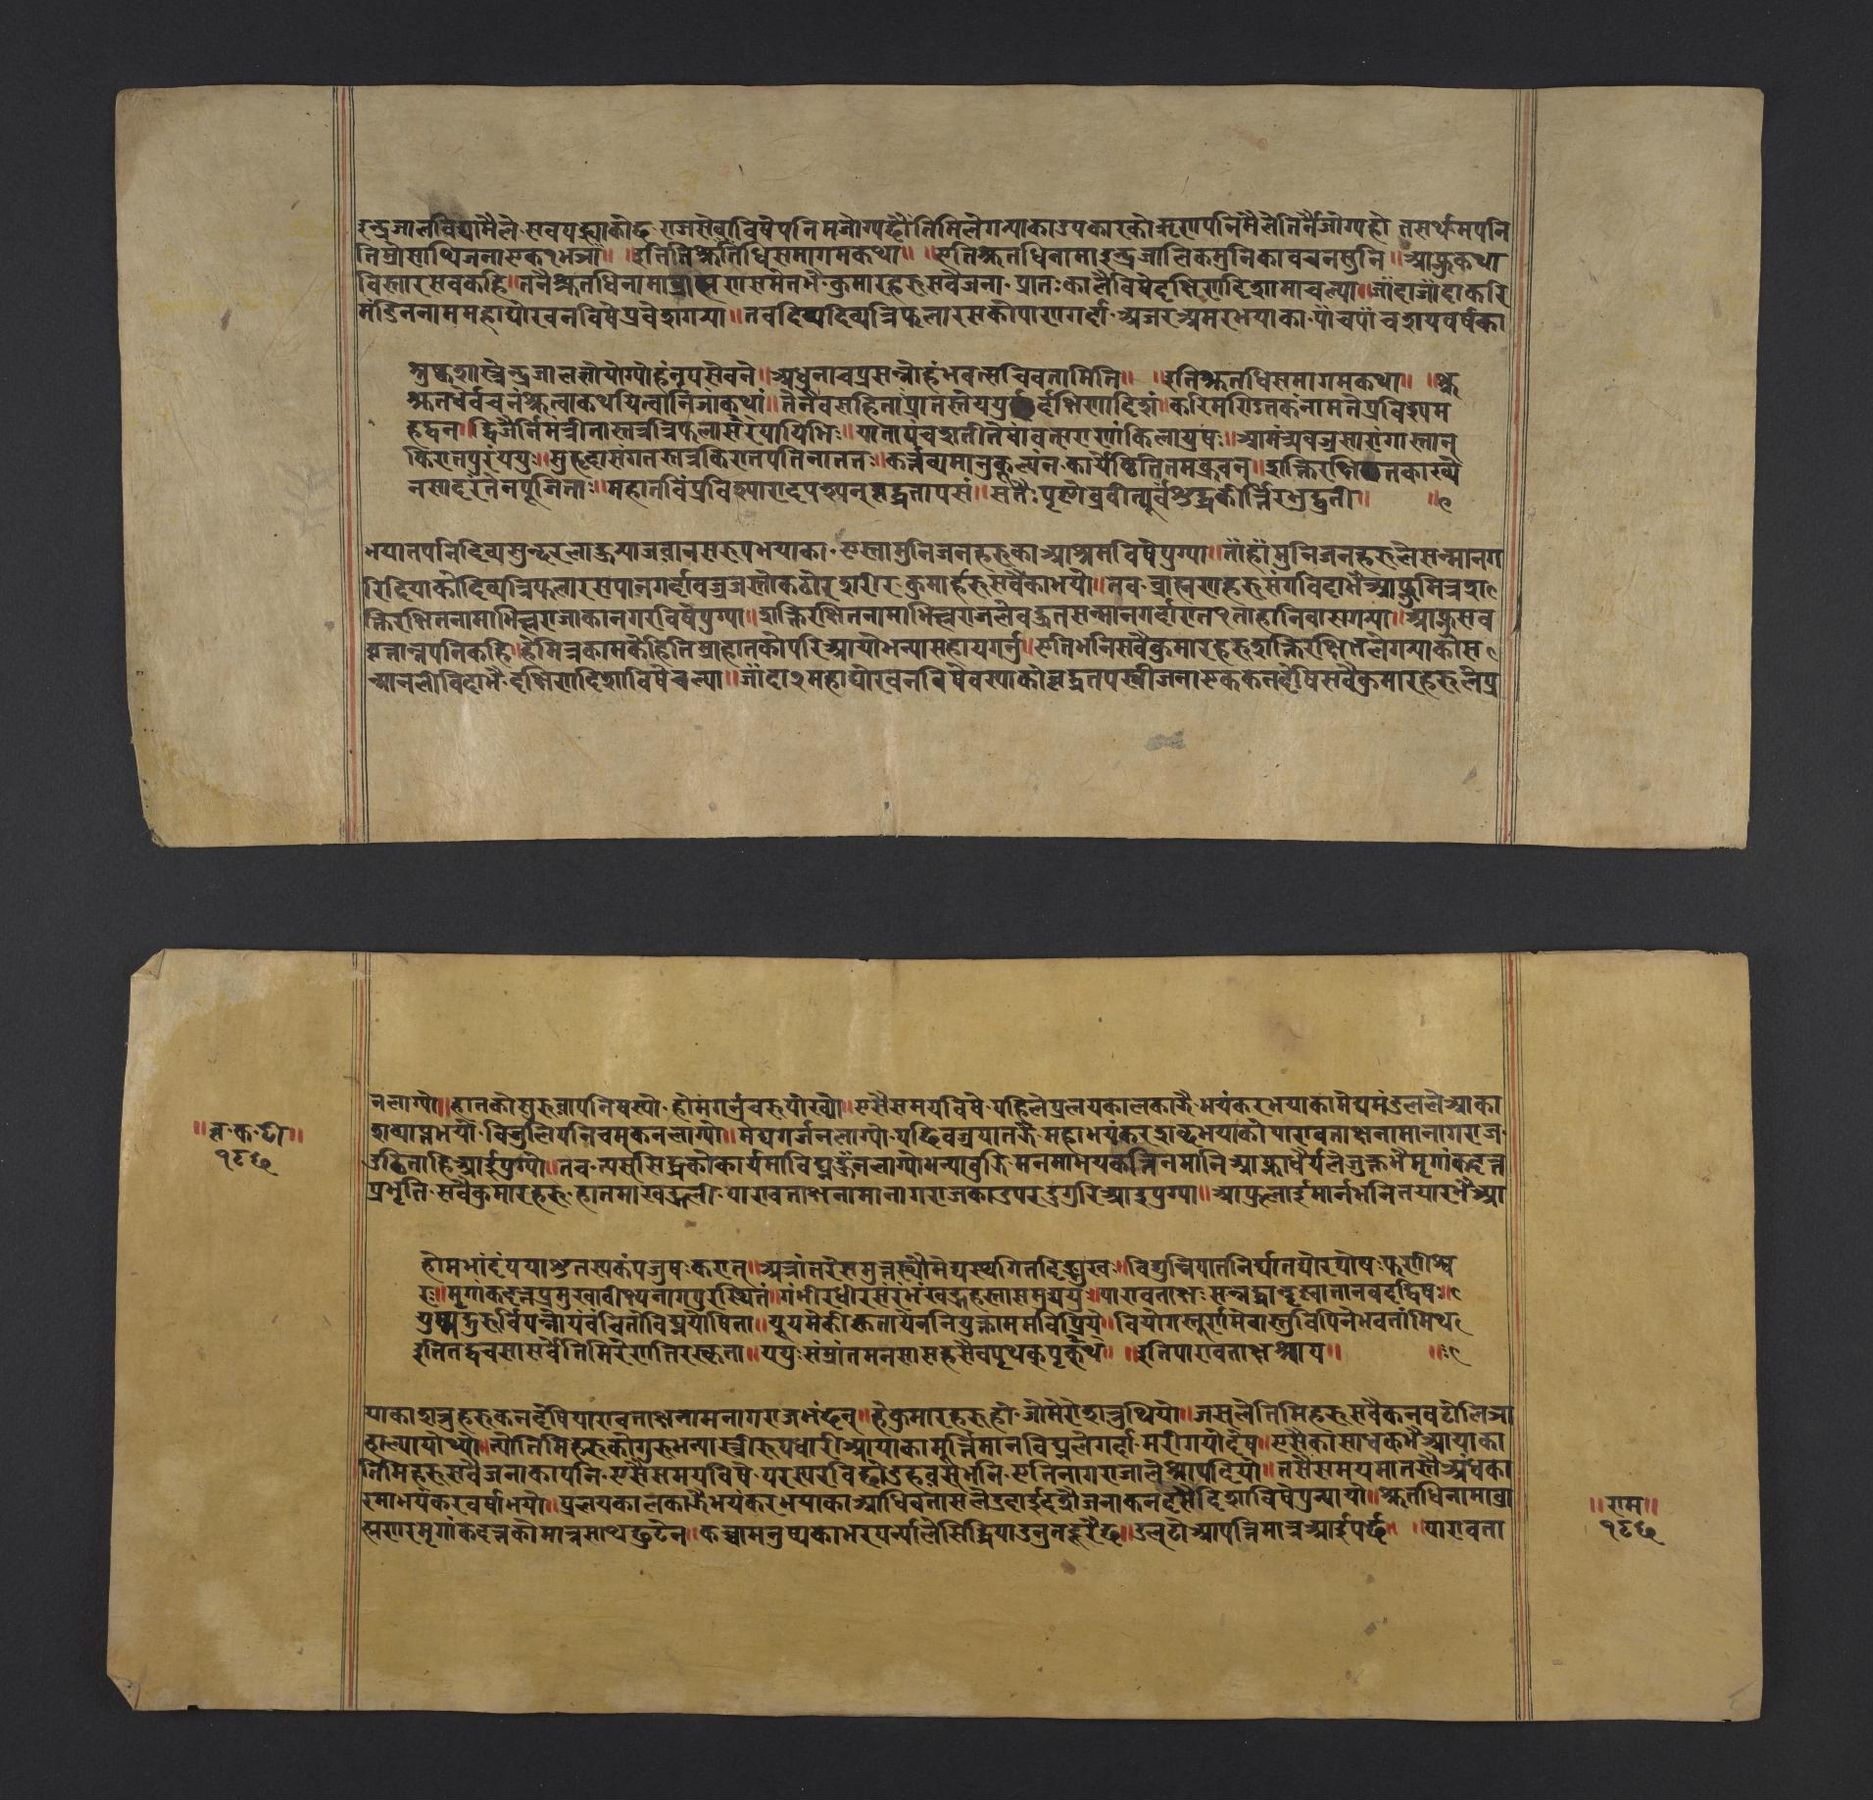 इन्द्रजालविद्यामैले सवपढ्याकोछ राजसेवाविषेपनि मजोग्यछौ तिमिलेगर्याकाउपकारकोऋणपनिमैलेतिर्नैजोग्यहो तसर्थमपनि
तिम्रोसाथिजनाएक१भञा॥ ॥इतिश्रुतधिसमागमकथा॥ ॥एतिश्रुतधिनामाइन्द्रजालिकमुनिकावचनसुनि॥आफ्नुकथा
विस्तारसवकहि॥तनैश्रुतधिनामाब्राह्मणसमेतभै कुमारहरुसवैजना प्रातःकालैविषेदक्षिणदिशामाचल्या॥जाँदाजाँदाकरि
मंडितनाममहाघोरवनविषेप्रवेशगर्या॥तवदिव्यदिव्यत्रिफलारसकोपाणगर्दा अजरअमरभयाका पाचपाच शयवर्षका
शास्त्रेन्द्रजालज्ञोयोग्योहंनृपसेवने॥अधुनाचप्रसन्नोहंभवत्सचिवतामिति॥ ॥इतिश्रुतधिसमागमकथा॥ ॥श्रु
श्रुतधेर्वचनंश्रुत्वाकथयित्वानिजाकथां॥तेनैवसहिताप्रातस्तेययु र्दक्षिणादिशं॥करिमण्डितकंनामतेप्रविश्यम
हद्वनं॥द्विजैर्निमंत्रीतास्तत्रत्रिफलासरपायिभिः॥यातापंचशतीतेषांवत्सराणांकिलायुषः॥आमंत्र्यवज्रसारांगास्तान्
किरातपुरंययुः॥सुहृदासंगतस्तत्रकिरातपतिनाततः॥कर्तव्यमानुकूल्यंनःकार्येष्वितितमब्रुवन्॥शक्तिरक्षितकाख्ये
नसादरंतेनपूजिताः॥महाटविंप्रविश्याराददृश्यन्वृद्धतापसं॥सतैःपृष्ठोब्रवीत्पूर्वंशुद्धकीर्त्तिरभूद्व्रती॥ ॥९
भयातपनिदिव्यसुन्दरलाठ्ठायाजवानसरुपभयाका एस्तामुनिजनहरुकाआश्रमविषेपुग्या॥ताँहाँमुनिजनहरुलेसन्मानग
रिदियाकोदिव्यत्रिफलारसपानगर्दावज्रजस्तोकठोरशरीर कुमारहरुसवैकाभयो॥तव ब्राह्मणहरुसंगविदाभैआफ्नुमित्रश९
क्तिरक्षितनामाभिल्लराजाकानगरविषेपुग्या॥शक्तिरक्षितनामाभिल्लराजलेवहुतसन्मानगर्दारात१ताहानिवासगर्या॥आफ्नुसव
वृत्तान्तपनिकहि॥हेमित्रकामकेहितिम्राहातकोपरिआयोभन्यासहायगर्नु॥एतिभनिसवैकुमारहरुशक्तिरक्षितलेगर्याकोस९
न्मानलीविदाभै दक्षिणदिशाविषेचल्या॥जाँदा२महाघोरवनविषेवस्याकोवृद्धतपस्वीजनाएककनदेषिसवैकुमारहरुलेप्र
नलाग्यो॥हातकोसुरुवापनिषस्यो होमगर्नुचरुपोख्यो॥एसैसमयविषे पहिलेप्रलयकालकाझै भयंकरभयाकामेघमंडलले आका
शव्याप्तभयो विजुलिपनिचम्कनलाग्यो॥मेघगर्जनलाग्यो यदिवज्रपातझै महाभयंकरशव्दभयाको पारावताक्षनामानागराज
उठिताहिआईपुग्यो॥तव त्यससिद्धकोकार्यमाविघ्नहुँनलाग्योभन्यावुझि मनमाभयकत्तिनमानिआफ्नाधैर्यलेजुक्तभैमृगांकदत्त
प्रभृति सवैकुमारहरु हातमाखड्गली पारावताक्षनामानागराजकाउपरडगुरिआइपुग्या॥आफुलाईमार्नभनितयारभैआ
होमभांदंपयाशुतस्पकंपजुषःकरात्॥अत्रांतरेसमुत्तस्थौमेघस्थगितदिङ्मुखः॥विद्युन्निपातनिर्घातघोरघोषःफणीश्व
रः॥मृगांकदत्तप्रमुखावीक्ष्यनागपुरस्थितं॥गंभीरधीरसंरंभंखड्गहस्तासमुद्ययुः॥पारावताक्षःसन्नद्धान्दृष्ट्वातानवदद्विषः॥९
युष्मद्गुरुर्विपन्नोयंवंचितोविघ्नयोषिता॥यूयमेकीकृतायेननियुक्ताममविप्रिये॥वियोगस्तूर्णमेवास्तुविपिनेभवतांमिथः९
इतितद्वचसासर्वेतिमिरेणतिरस्कृता॥ययुःसंभ्रांतमनसासहसैवपृथक्पृथक्॥ ॥इतिपारावताक्षश्रापः॥ ॥९
याकाशत्रुहरुकनदेषिपारावताक्षनामनागराजभंछन्॥हेकुमारहरुहो जोमेरोशत्रुथियो॥जसलेतिमिहरुसवैकनवटोलिञा
हाल्यायोथ्यो॥त्योतिमिहरुकोगुरुभन्यास्त्रीरुपधारीआयाकामूर्त्तिमानविघ्नलेगर्दा मरीगयोदेष॥एसैकासाधकभैआयाका
तिमिहरुसवैजनाकापनि एसैसमयविषे परस्परविछोडहवसभनि एतिनागराजालेश्रापदियो॥तसैसमयमातस्तैअंधका
रमाभयंकरवर्षाभयो॥प्रलयकालकाझैभयंकरभयाकाआधिवतासलेउडाईदशैजनाकनदशैदिशाविषेपुर्‍यायो॥श्रुतधिनामाब्रा
ह्मणरमृगांकदत्तकोमात्रसाथछुटेन कच्चामनुष्यकाभरपर्न्यालेसिद्धिपाउनुतदूरैछ॥उल्टोआपत्तिमात्रआईपर्छ॥ ॥पारावता
॥वृ क टी॥
१९६
॥राम॥
१९६